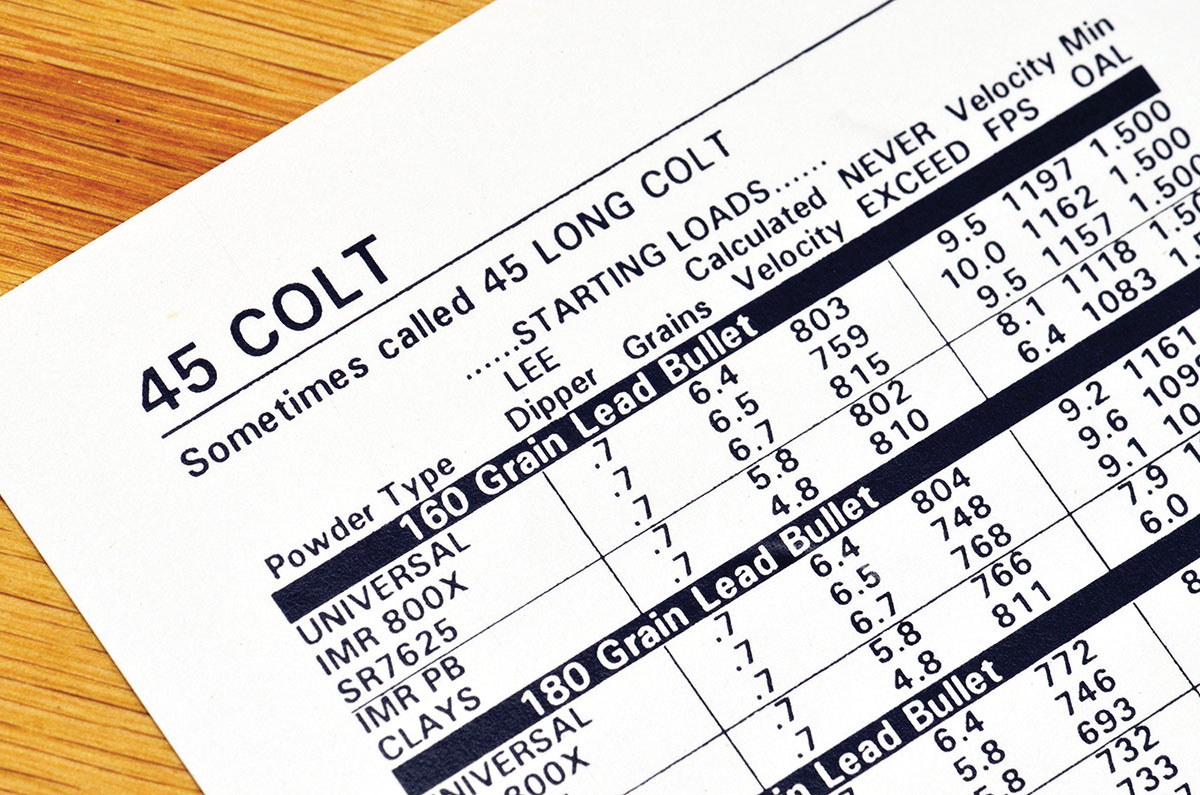 45 COLT
Sometimes called 45 LONG COLT
......STARTING LOADS......
LEE Calculated NEVER Velocity Min
Powder Type Dipper Grains Velocity EXCEED FPS OAL
160 Grain Lead Bullet
UNIVERSAL .7 6.4 803 9.5 1197 1.500
IMR 800X .7 6.5 759 10.0 1162 1.500
SR7625 .7 6.7 815 9.5 1157 1.500
IMR PB .7 5.8 802 8.1 1118
CLAYS .7 4.8 810 6.4 1083
180 Grain Lead Bullet
NIVERSAL .7 6.4 804 9.2 1161
800X .7 6.5 748 9.6
.7 6.7 768 9.1
.7 5.8 766 7.9
.7 4.8 811 6.0
Lead Bullet
6.4 772
5.8 746
693
732
733